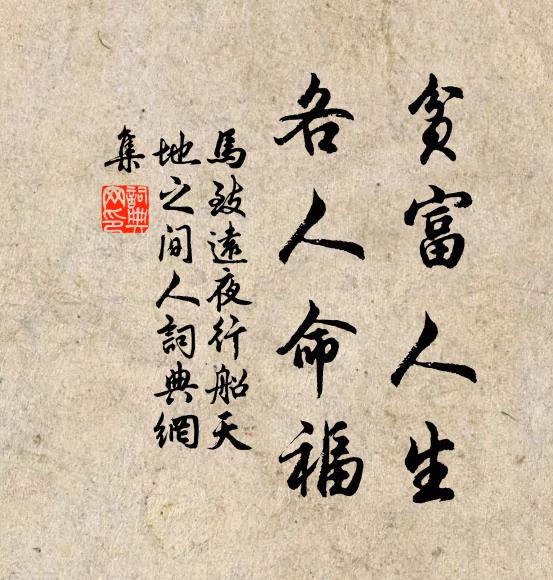 貧富人生
各人命福
馬致遠夜行船天
地之间人詞典網
集
詞典
网印